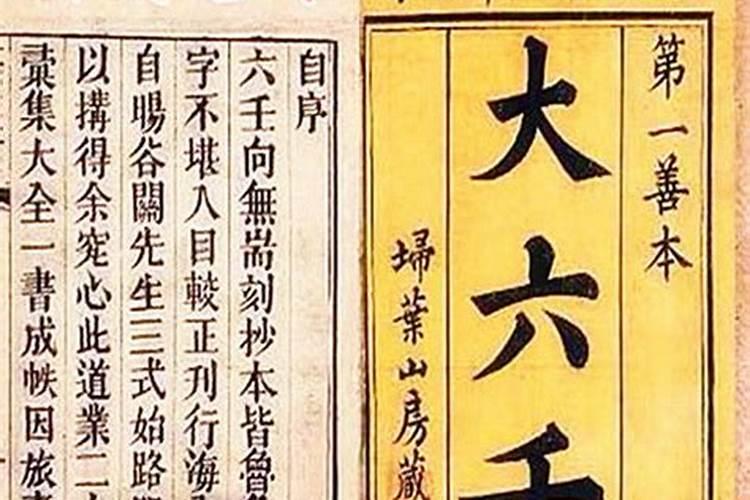 第一善本
大六壬
埽葉山房藏
自序
六壬向無耑刻抄本皆魯
字不堪入目較正刊行海
自暘谷關先生三式始路
以搆得余究心此道業二
彚集大全一書成帙因旅